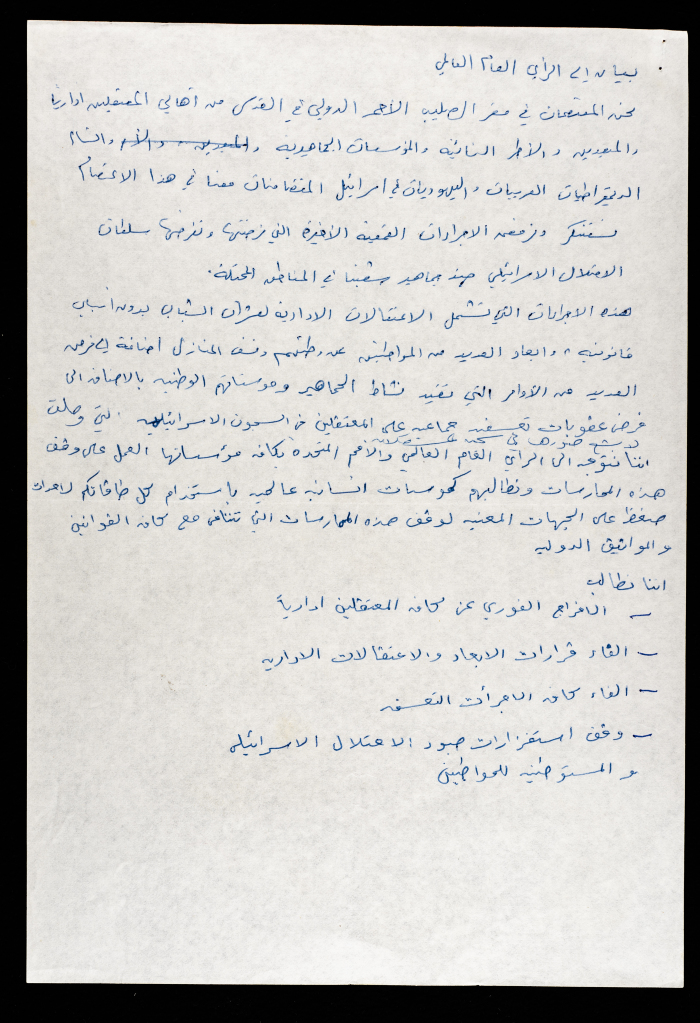 بيان إلى الرأي العام العالمي
نحن المعتصمات في مقر الصليب الأحمر الدولي في القدس من أهالي المعتقلين اداريا
والمبعدين والأطر النسائية والمؤسسات الجماهيرية والنساء
الديمقراطيات العربيات واليهوديات في اسرائيل المتضامنات معنا في هذا الاعتصام
نستنكر ونرفض الاجراءات القمعية الأخيرة التي فرضتها وتفرضها سلطات
الاحتلال الاسرائيلي ضد جماهير شعبنا في المناطق المحتلة.
هذه الاجراءات التي تشمل الاعتقالات الادارية لعشرات الشباب بدون أسباب
قانونية، وابعاد العديد من المواطنين عن وطنهم ونسف المنازل أضافة إلى فرض
العديد من الأوامر التي تقيد نشاط الجماهير ومؤسساتهم الوطنيه بالاضافه الى
فرض عقوبات تعسفيه جماعيه على المعتقلين في السجون الاسرائيليه التي وصلت
لابشع صورها في سجن
اننا نتوجه الى الرأي العام العالمي والأمم المتحده بكافه مؤسساتها العمل على وقف
هذه الممارسات ونطالبهم كمؤسسات انسانيه عالميه باستخدام كل طاقاتكم لاحداث
ضغط على الجهات المعنيه لوقف هذه الممارسات التي تتنافى مع كافه القوانين
والمواثيق الدوليه
اننا نطالب
– الافراج الفوري عن كافه المعتقلين ادارياً
– الغاء قرارات الابعاد والاعتقالات الاداريه
– الغاء كافه الاجرأت التعسفيه
– وقف استفزازات جنود الاحتلال الاسرائيلي
و المستوطنين للمواطنين